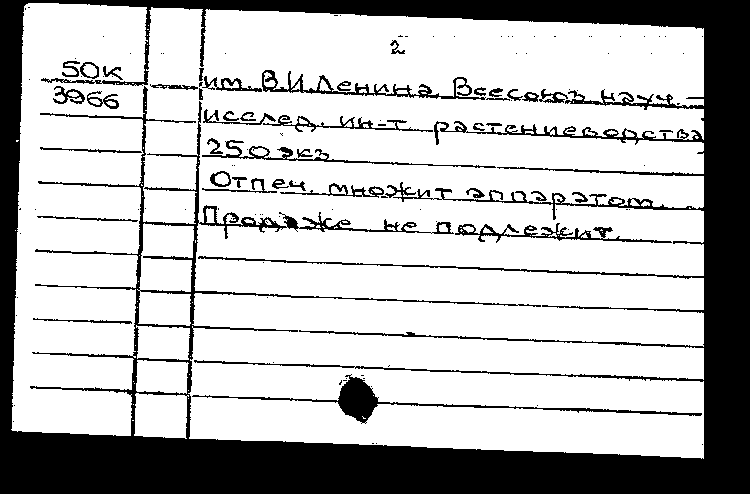 2
50К
3966
им. В.И.Ленина. Всесоюз науч.-
исслед. ин-т растениеводства
250 экз
Отпеч. множит аппаратом.
Продаже не подлежит.